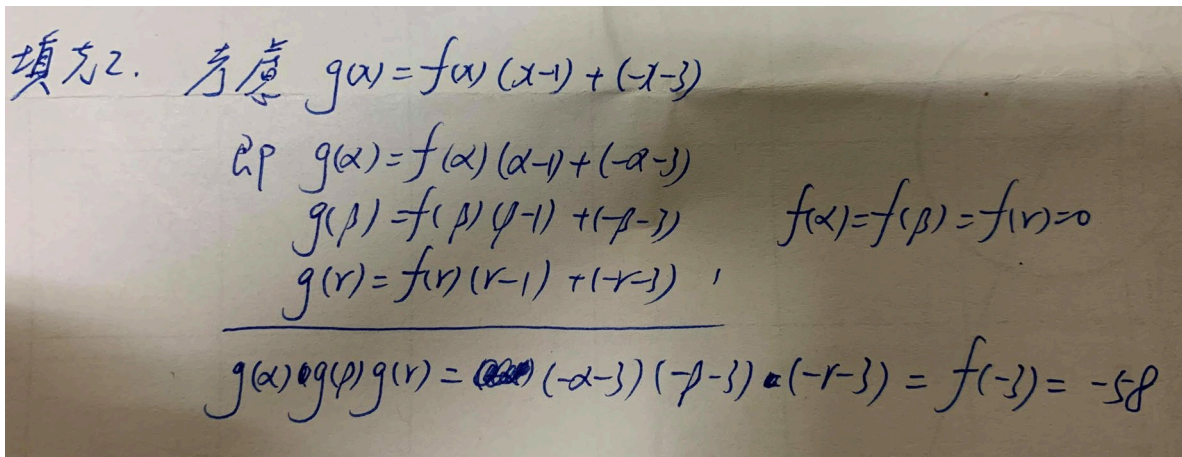 填充2. 考慮 g(x)=f(x)(x-1)+(-x-3)
即 g(α)=f(α)(α-1)+(-α-3)
g(β)=f(β)(β-1)+(-β-3) f(α)=f(β)=f(r)=0
g(r)=f(r)(r-1)+(-r-3),
g(α)g(β)g(r)=(-α-3)(-β-3)(-r-3)=f(-3)=-58